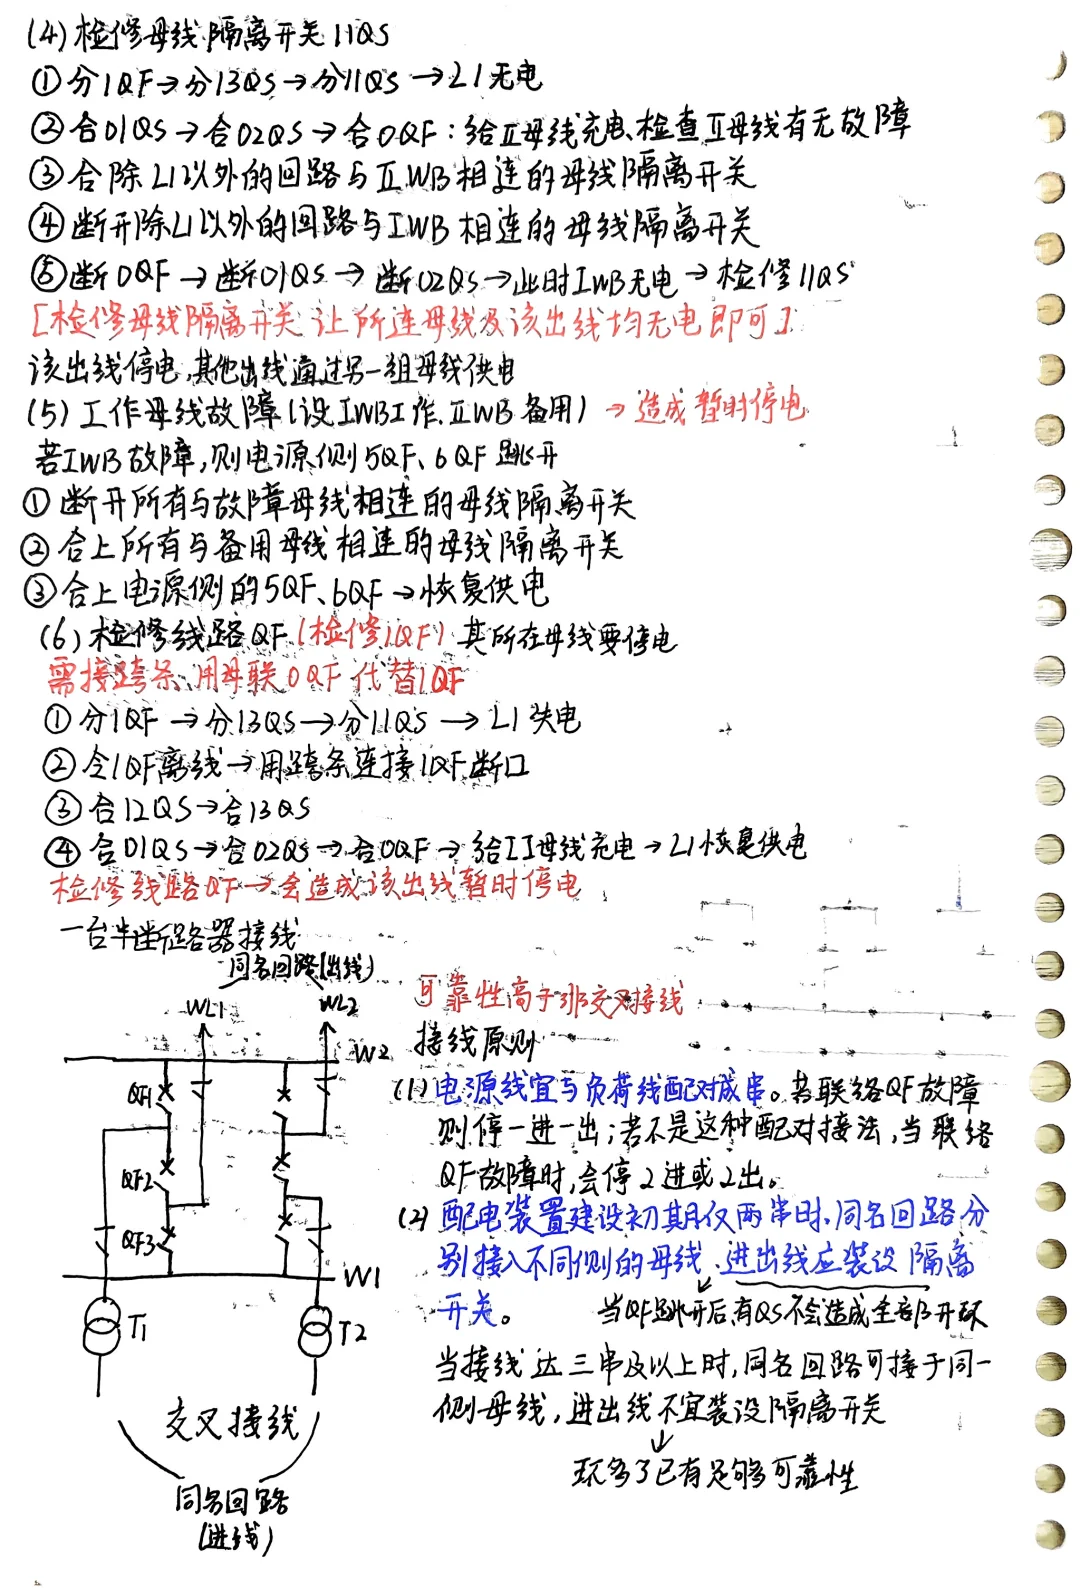 (4) 检修母线隔离开关 11QS
①分1QF→分13QS→分11QS→L1无电
②合01QS→合02QS→合0QF：给Ⅱ母线充电、检查Ⅱ母线有无故障
③合除L1以外的回路与ⅡWB相连的母线隔离开关
④断开除L1以外的回路与ⅠWB相连的母线隔离开关
⑤断0QF→断01QS→断02QS→此时ⅠWB无电→检修11QS
[检修母线隔离开关 让所连母线及该出线均无电即可]
该出线停电,其他出线通过另一组母线供电
(5) 工作母线故障(设ⅠWB工作.ⅡWB备用)→造成暂时停电
若ⅠWB故障,则电源侧5QF、6QF跳开
①断开所有与故障母线相连的母线隔离开关
②合上所有与备用母线相连的母线隔离开关
③合上电源侧的5QF、6QF→恢复供电
(6) 检修线路QF(检修1QF) 其所在母线要停电
需接跨条 用母联0QF代替1QF
①分1QF→分13QS→分11QS→L1失电
②令1QF离线→用跨条连接1QF断口
③合12QS→合13QS
④合01QS→合02QS→合0QF→给II母线充电→L1恢复供电
检修线路QF→会造成该出线暂时停电
一台半断路器接线
同名回路(出线)
WL1
WL2
W2
QF1
QF2
QF3
W1
T1
T2
交叉接线
同名回路
(进线)
可靠性高于非交叉接线
接线原则
(1) 电源线宜与负荷线配对成串。若联络QF故障
则停一进一出；若不是这种配对接法,当联络
QF故障时,会停2进或2出。
(2) 配电装置建设初期仅两串时,同名回路分
别接入不同侧的母线.进出线应装设隔离
开关。
当QF跳开后有QS不会造成全部开环
当接线达三串及以上时,同名回路可接于同一
侧母线,进出线不宜装设隔离开关
环多了已有足够可靠性